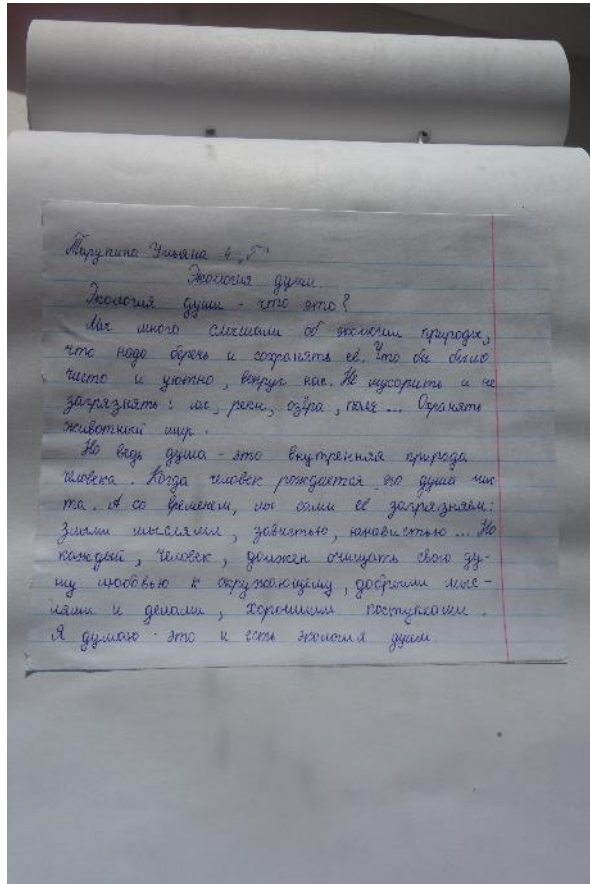 Тарупина Ульяна 4 „Г"
Экология души.
Экология души - что это?
Мы много слышали об экологии природы,
что надо беречь и сохранять её. Что бы было
чисто и уютно, вокруг нас. Не мусорить и не
загрязнять: лес, реки, озёра, поля... Охранять
животный мир.
Но ведь душа - это внутренняя природа
человека. Когда человек рождается его душа чис
та. А со временем, мы сами её загрязняем:
Злыми мыслями, завистью, ненавистью... Но
каждый, человек, должен очищать свою ду-
шу любовью к окружающему, добрыми мыс-
лями и делами, хорошими поступками.
Я думаю - это и есть экология души.